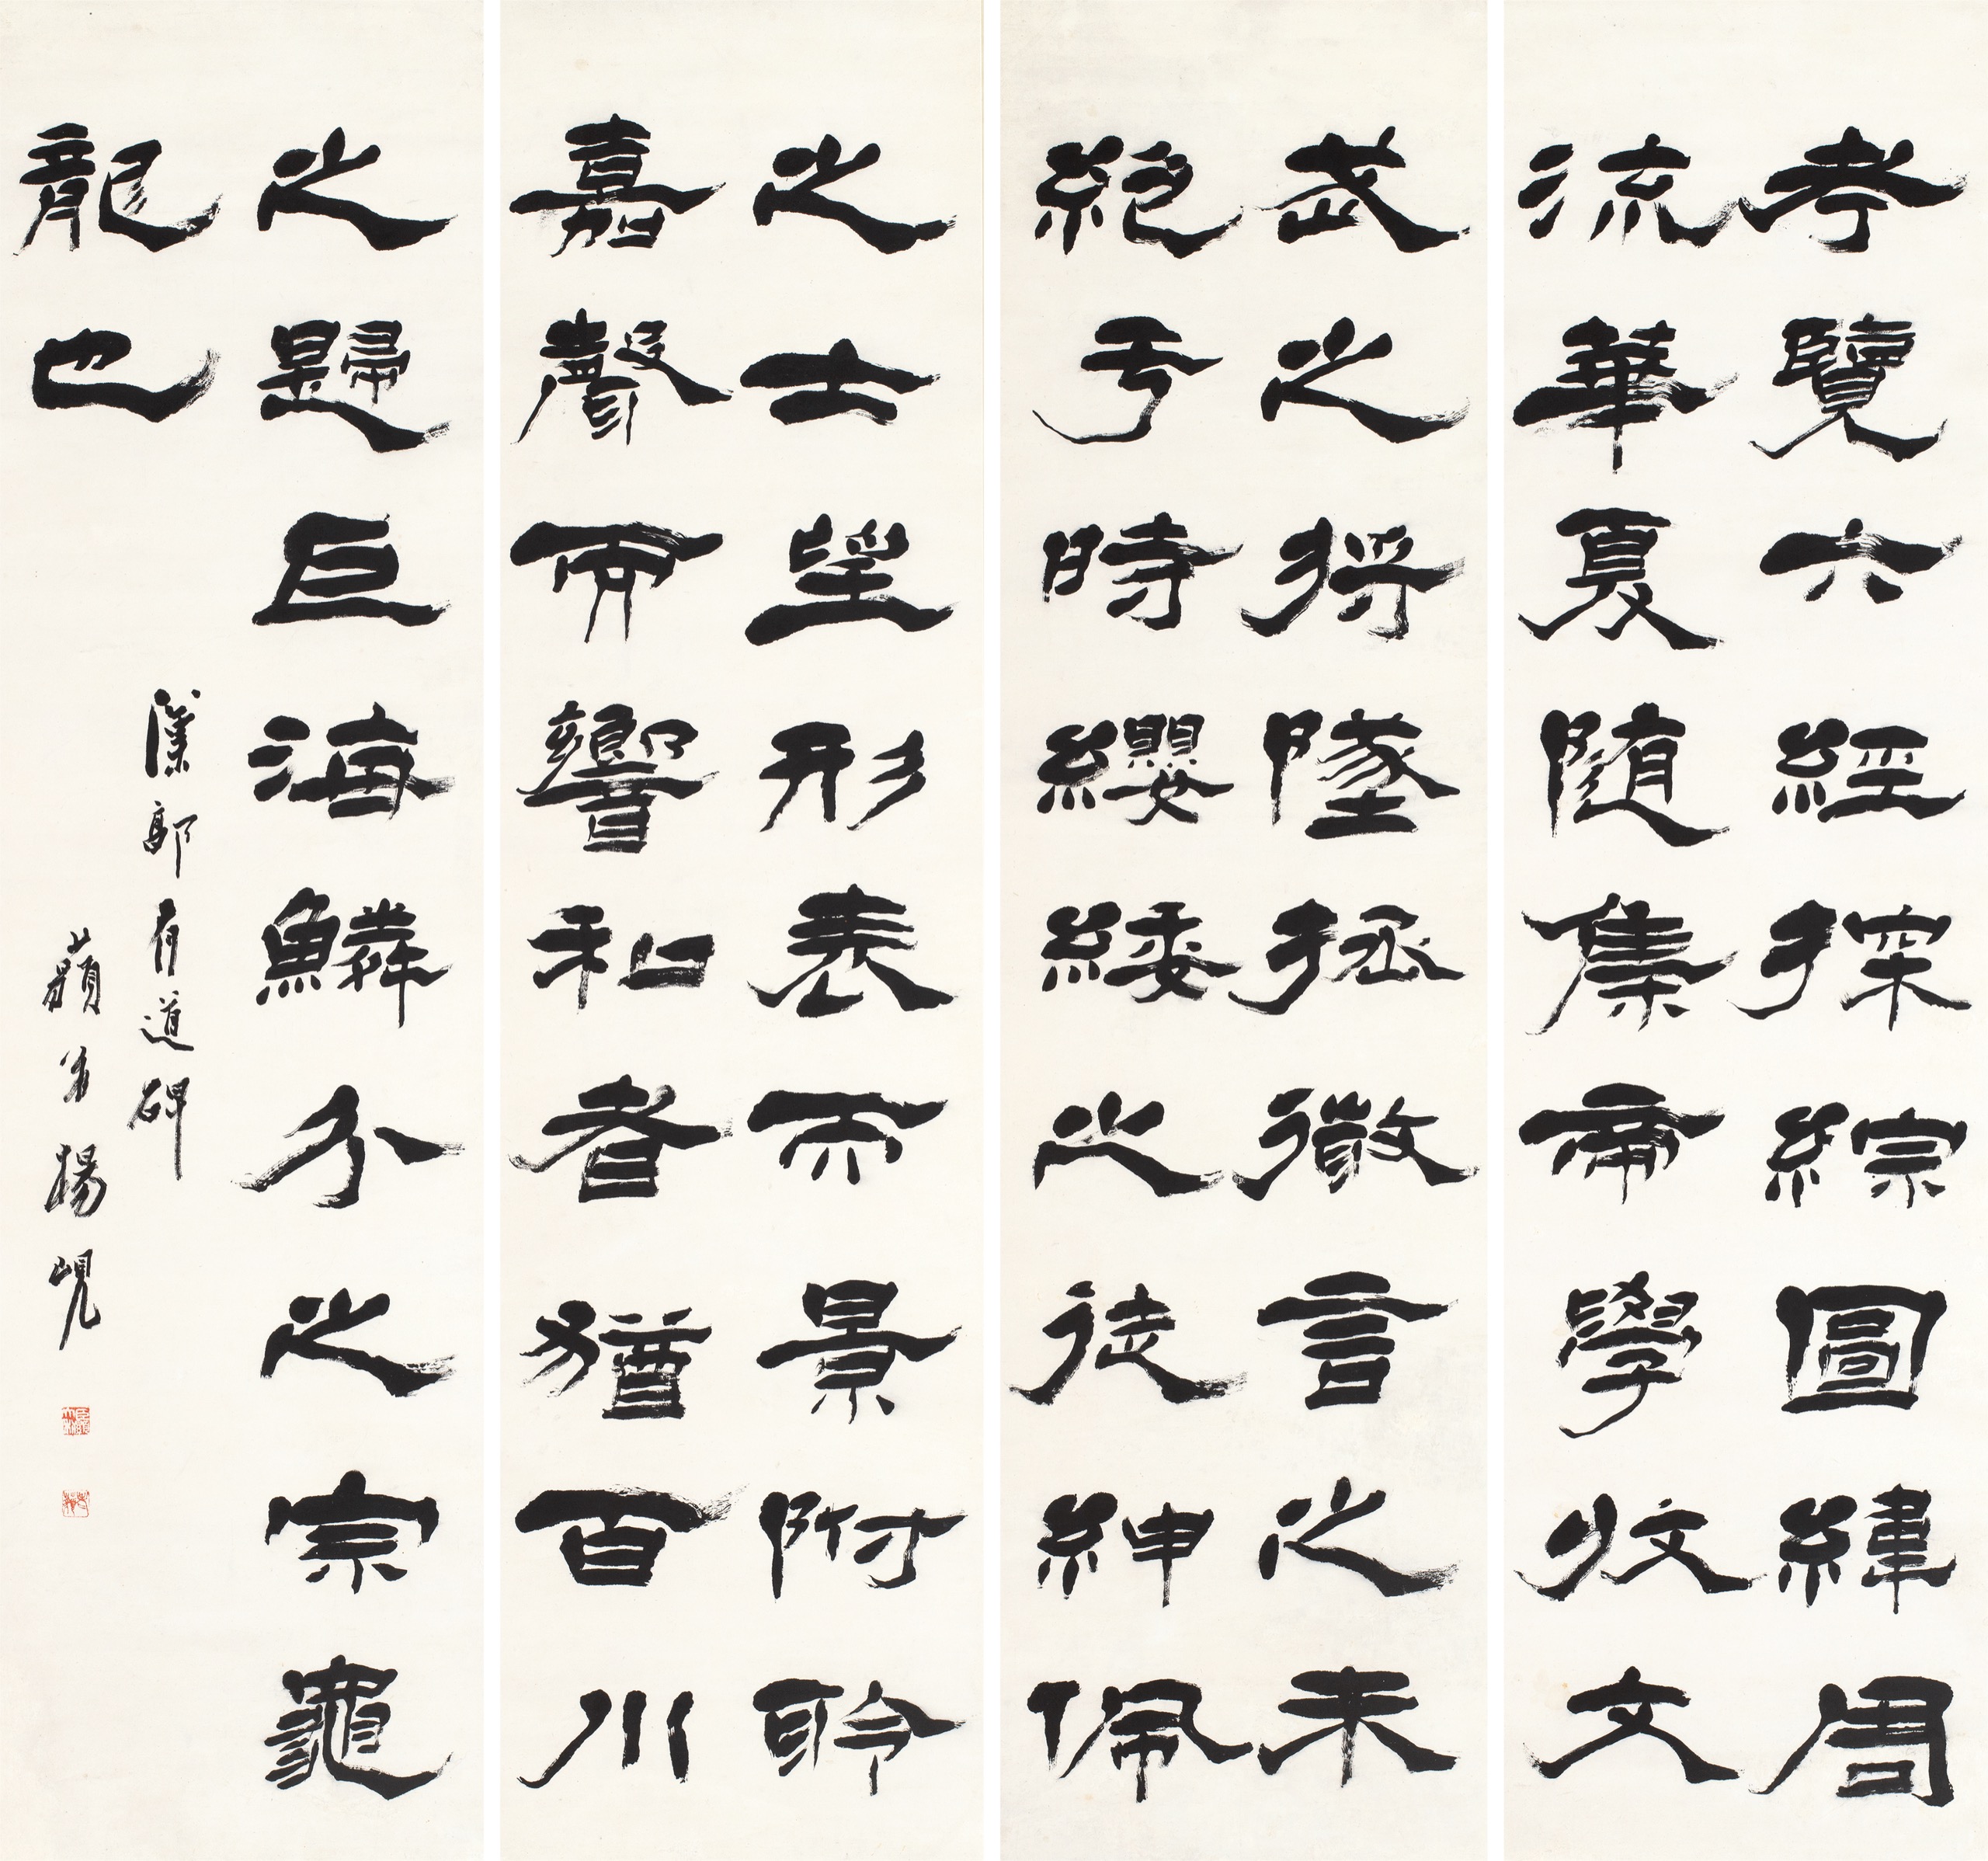 考覽六經探綜圖緯周
流華夏随集帝學收文
武之将墜拯微言之未
絕于時纓緌之徒紳佩
之士望形表而景附聆
嘉聲而響和者猶百川
之歸巨海鱗介之宗龜
龍也
漢郭有道碑
藐翁楊峴